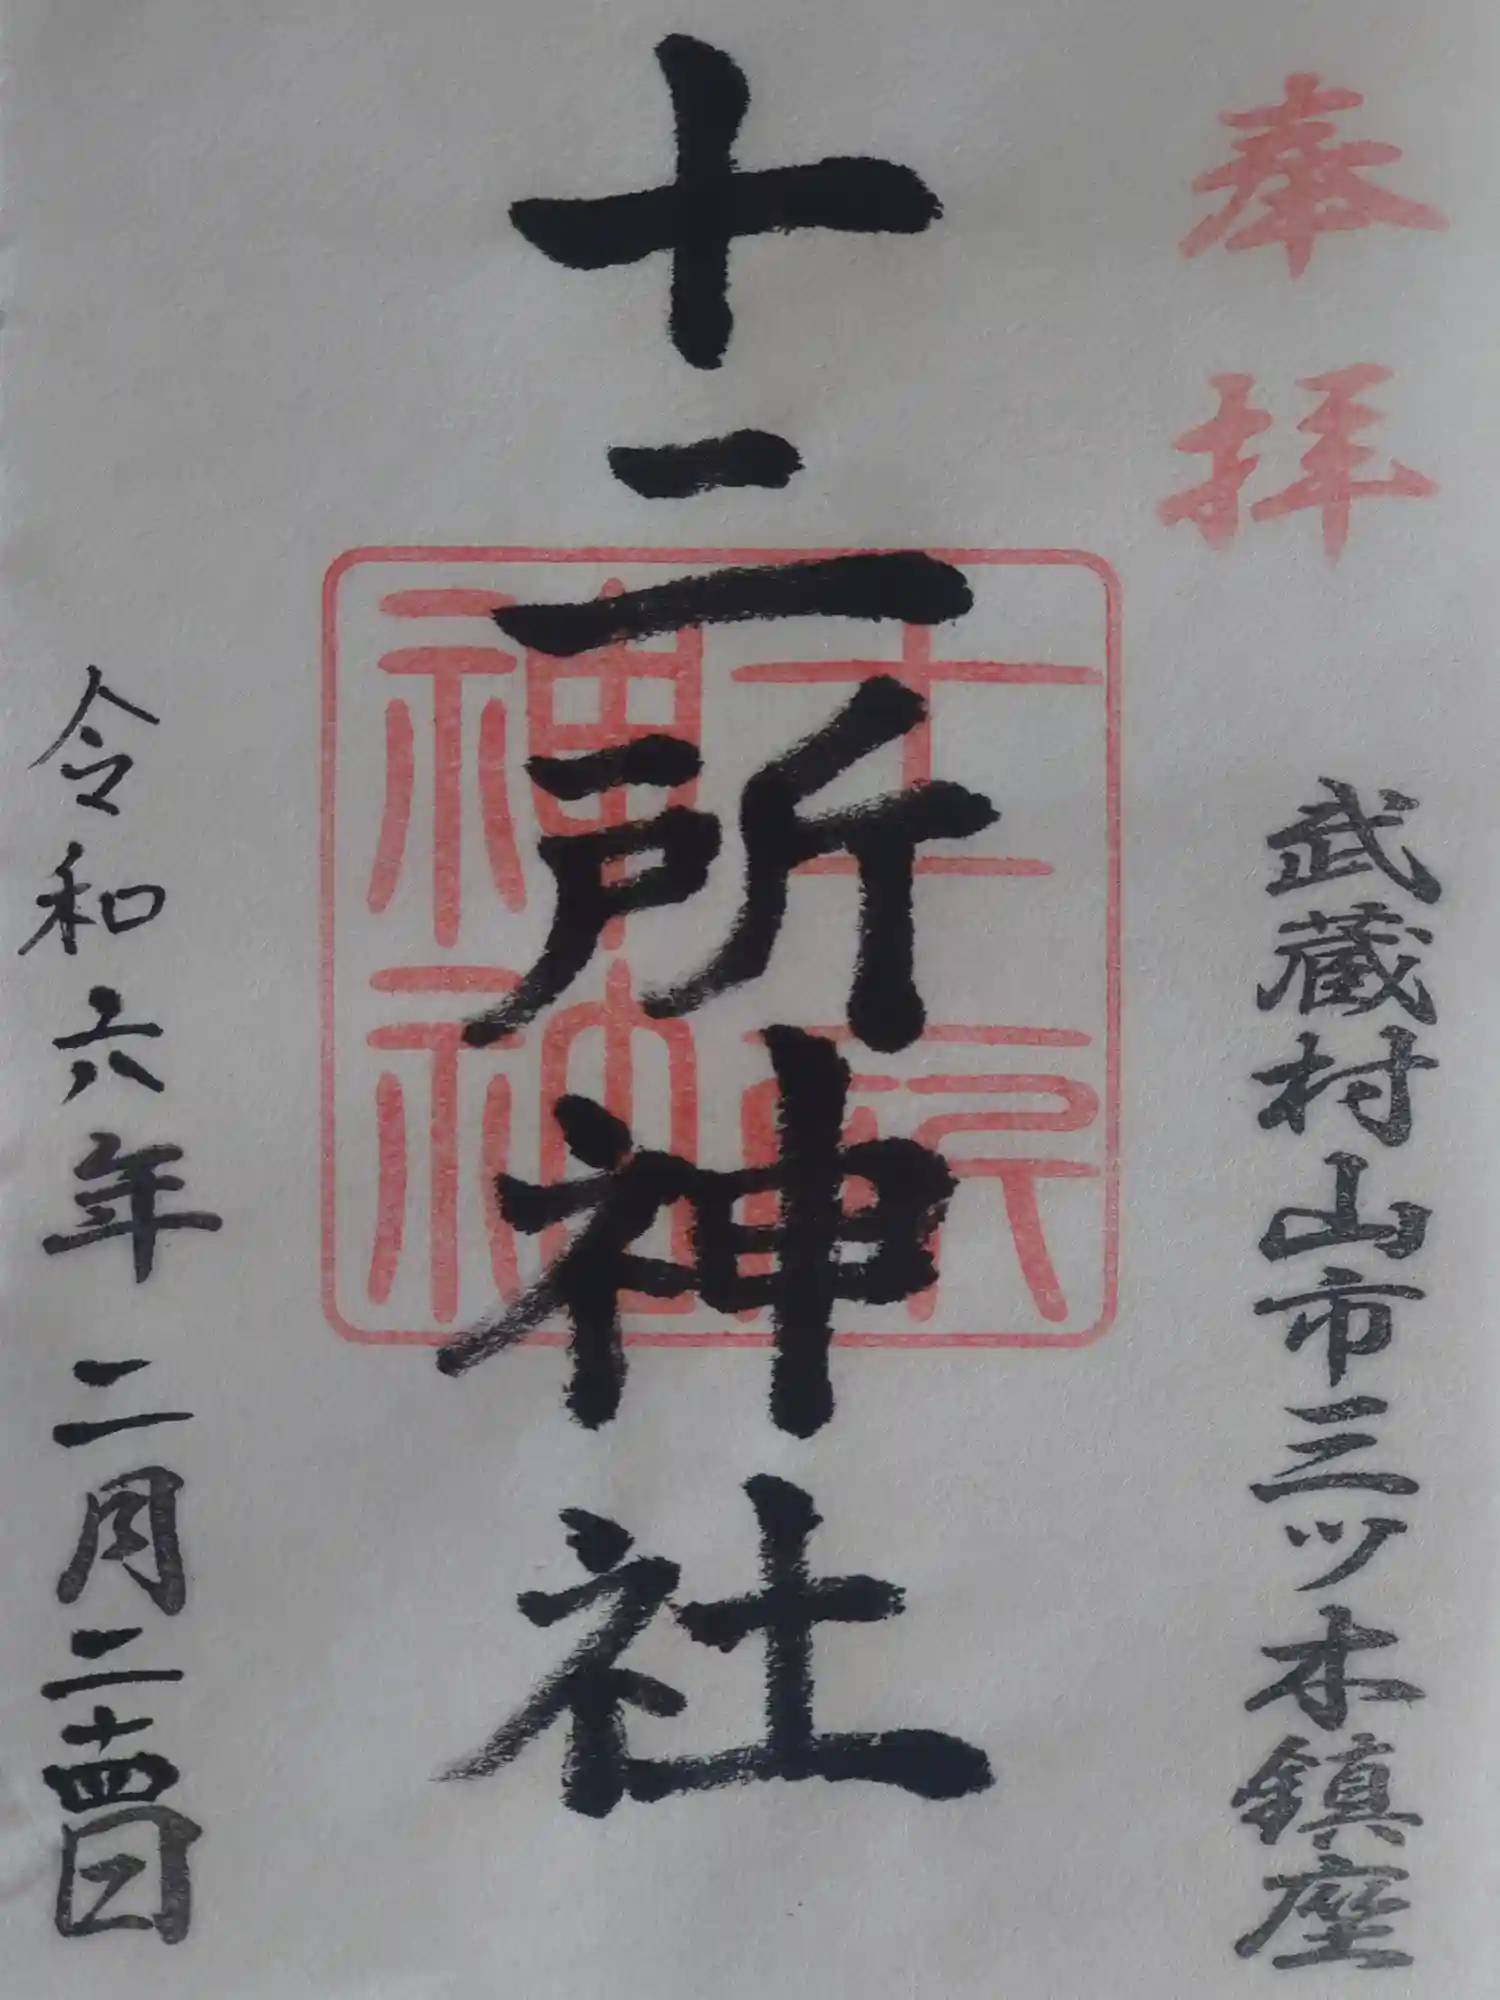 奉拝
武蔵村山市三ツ木鎮座
十二所神社
十二所神社
令和六年二月二十四日